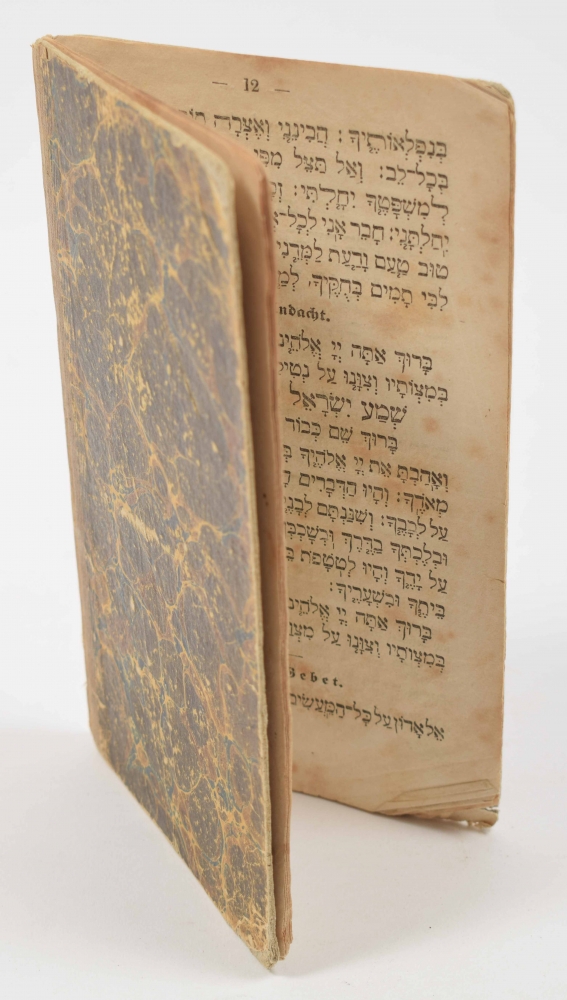 — 12 —
בְּנִפְלְאוֹתֶיךָ: חָבִּינֵנִי וְאֶצְּרָה
בְּכָל־לֵב: וְאַל תַּצֵּל מִפִּי
לְמִשְׁפָּטֶךָ יִחָלְתִּי:
יִחַלְתָּנִי: חָבֵר אָנִי לְכָל־
טוּב טַעַם וָדַעַת לַמְּדֵנִי
לִבִּי תָמִים בְּחֻקֶּיךָ,
ndacht.
בָּרוּךְ אַתָּה יְיָ אֱלֹהֵינוּ
בְּמִצְוֹתָיו וְצִוָּנוּ עַל נְטִילַ
שְׁמַע יִשְׂרָאֵל
בָּרוּךְ שֵׁם כְּבוֹד
וְאָהַבְתָּ אֵת יְיָ אֱלֹהֶיךָ בְּ
מְאֹדֶךָ: וְהָיוּ הַדְּבָרִים הָ
עַל לְבָבֶךָ: וְשִׁנַּנְתָּם לְבָנֶי
וּבְלֶכְתְּךָ בַדֶּרֶךְ וּבְשָׁכְבְּ
עַל יָדֶךָ וְהָיוּ לְטֹטָפֹת בֵּ
בֵּיתֶךָ וּבִשְׁעָרֶיךָ:
בָּרוּךְ אַתָּה יְיָ אֱלֹהֵינוּ
בְּמִצְוֹתָיו וְצִוָּנוּ עַל מִצְוַ
Gebet.
אֵל אָדוֹן עַל כָּל־הַמַּעֲשִׂים